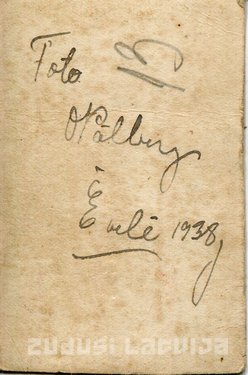 Foto 13
O Pālberg
Ēvelē 1938g
ZUDUSI LATVIJA